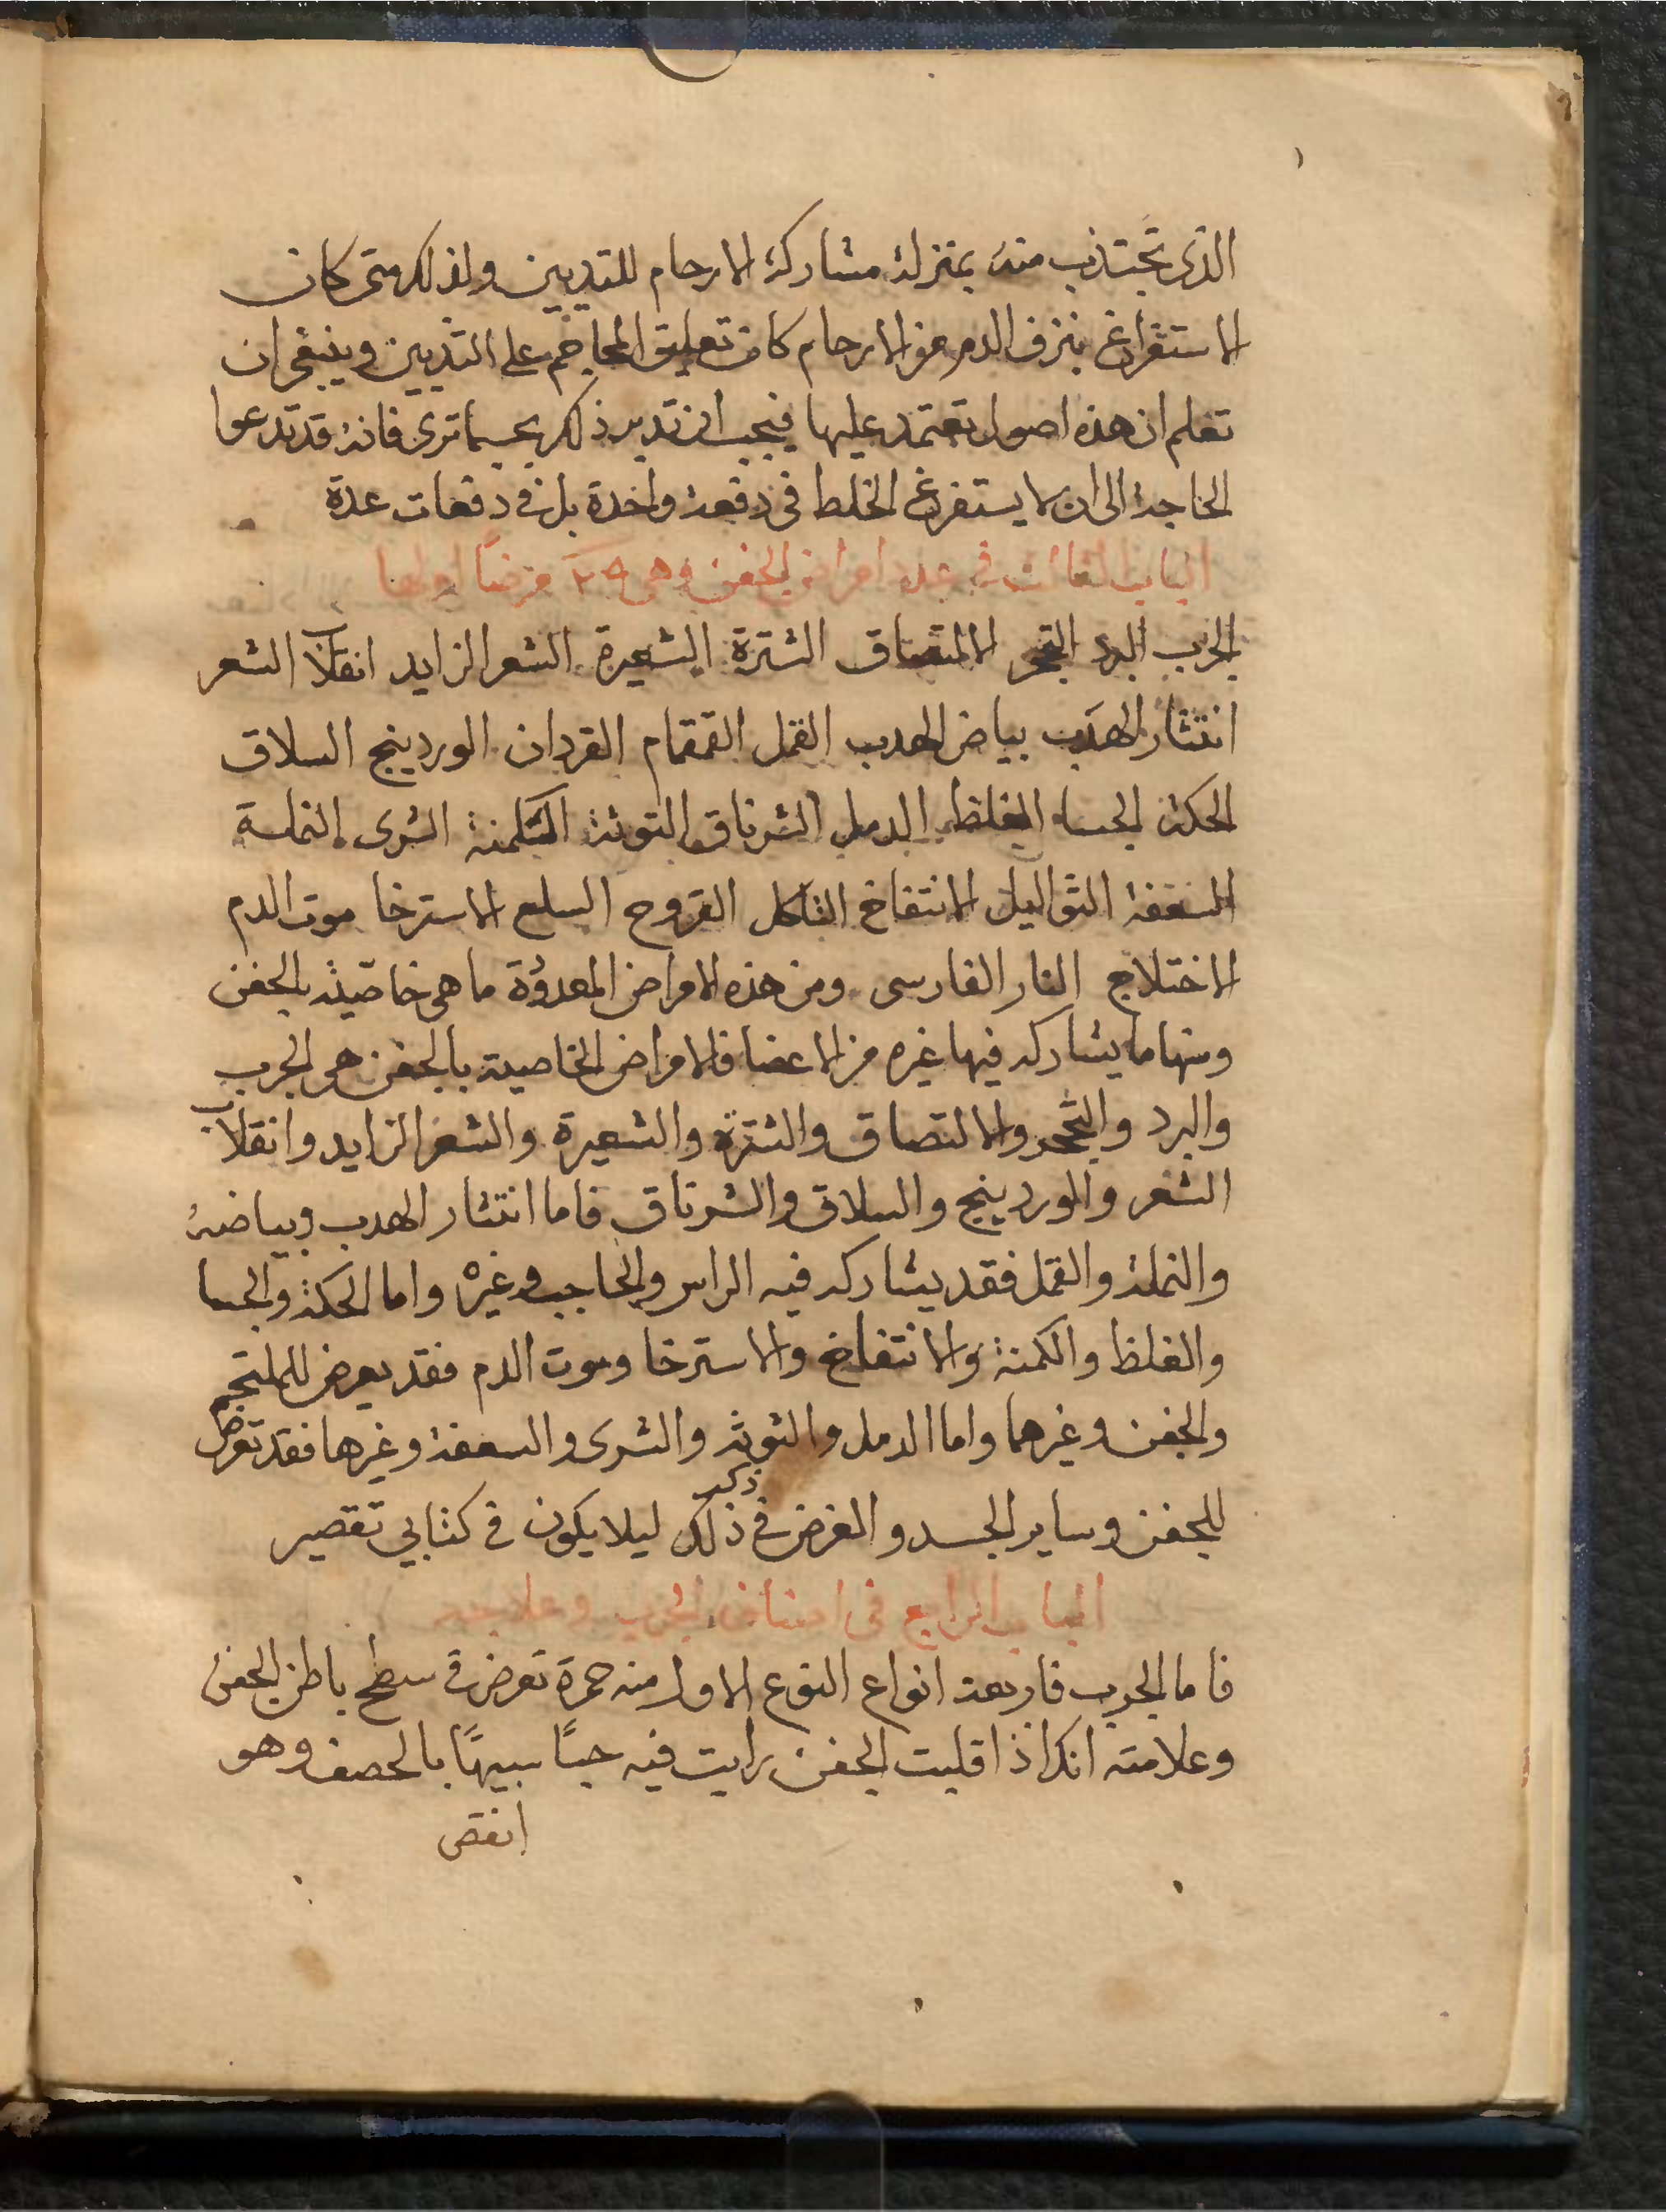 الذى تجتذب منه بمنزلة مشاركة الارحام للثديين ولذلك متى كان
الاستفراغ بنزف الدم من الارحام كان تعليق المحاجم على الثديين وينبغى ان
تعلم ان هذه اصول تعتمد عليها فيجب ان تدبر ذلك بحسب ما ترى فانه قد تدعوا
الحاجة الى ان لا يستفرغ الخلط فى دفعة واحدة بل فى دفعات عدة
الباب الثالث فى عدد امراض الجفن وهى ٢٩ مرضًا اولها
الجرب البرد التحجر الالتصاق الشترة الشعيرة الشعر الزايد انقلاب الشعر
انتثار الهدب بياض الهدب القمل القمقام القردان الوردينج السلاق
الحكة الجسا الغلظ الدمل الشرناق التوثة الكمنة الشرى النملة
السعفة الثواليل الانتفاخ التاكل القروح السلع الاسترخا موت الدم
الاختلاج النار الفارسى ومن هذه الامراض المعدوة ما هى خاصية بالجفن
ومنها ما يشاركه فيها غيره من الاعضا فالامراض الخاصية بالجفن هى الجرب
والبرد والتحجر والالتصاق والشترة والشعيرة والشعر الزايد وانقلاب
الشعر والوردينج والسلاق والشرناق فاما انتثار الهدب وبياضه
والنملة والقمل فقد يشاركه فيه الراس والحاجب وغيره واما الحكة والجسا
والغلظ والكمنة والانتفاخ والاسترخا وموت الدم فقد يعرض للملتحم
والجفن وغيرهما واما الدمل والتوثة والشرى والسعفة وغيرها فقد تعرض
للجفن وساير الجسد والغرض فى ذكر ذلك ليلا يكون فى كتابي تقصير
الباب الرابع فى اصناف الجرب وعلاجه
فاما الجرب فاربعة انواع النوع الاول منه حمرة تعرض فى سطح باطن الجفن
وعلامته انك اذا قلبت الجفن رايت فيه حبًا شبيهًا بالحصف وهو
انقص